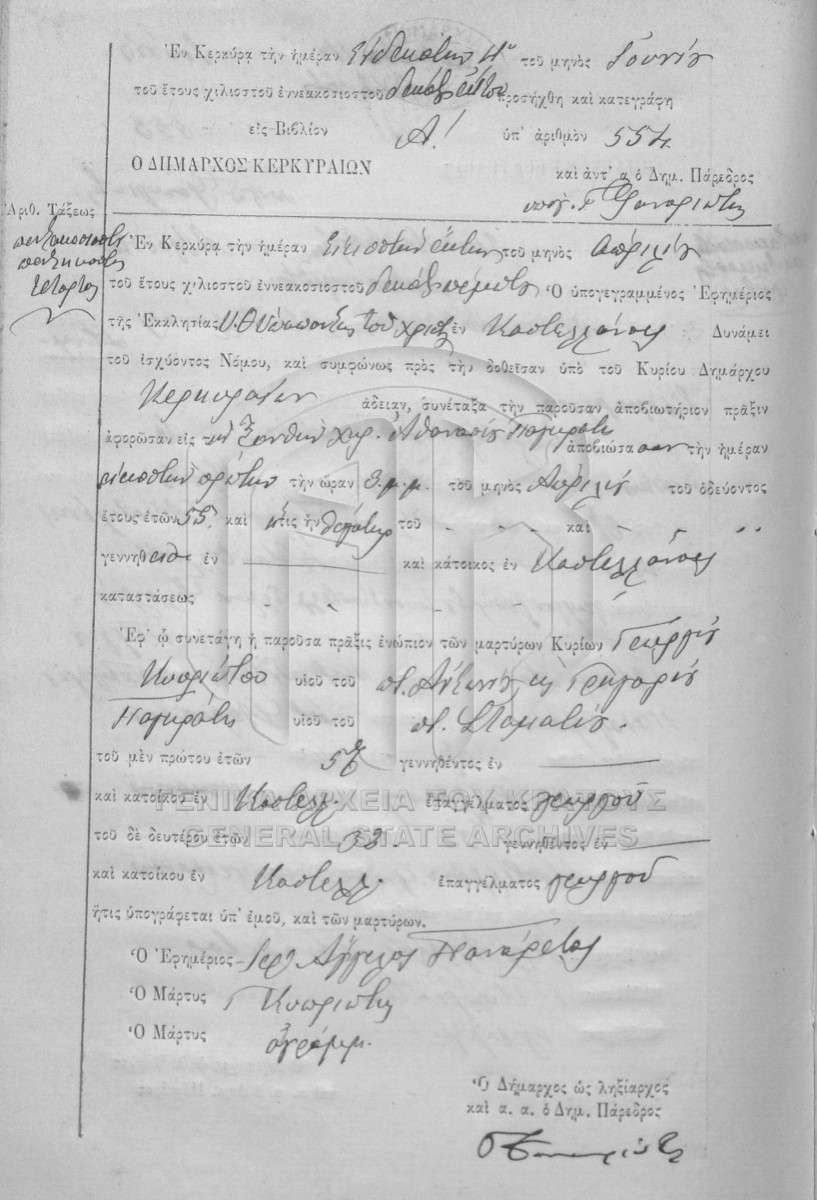 Ἐν Κερκύρᾳ τὴν ἡμέραν ἑνδεκάτην 11ην τοῦ μηνὸς Ἰουνίου
τοῦ ἔτους χιλιοστοῦ ἐννεακοσιοστοῦ προσήχθη καὶ κατεγράφη
εἰς Βιβλίον Α! ὑπ' ἀριθμὸν 554
Ο ΔΗΜΑΡΧΟΣ ΚΕΡΚΥΡΑΙΩΝ
καὶ ἀντ' α ὁ Δημ. Πάρεδρος
Ἀριθ. Τάξεως
πεντακοσιοστὸς
πεντηκοστὸς
τέταρτος
Ἐν Κερκύρᾳ τὴν ἡμέραν εἰκοστὴν ἕκτην τοῦ μηνὸς Ἀπριλίου
τοῦ ἔτους χιλιοστοῦ ἐννεακοσιοστοῦ δεκάτου πέμπτου Ὁ ὑπογεγραμμένος Ἐφημέριος
τῆς Ἐκκλησίας Υ.Θ Ὑπαπαντῆς τοῦ Χριστοῦ ἐν Καστελλάνοις Δυνάμει
τοῦ ἰσχύοντος Νόμου, καὶ συμφώνως πρὸς τὴν δοθεῖσαν ὑπὸ τοῦ Κυρίου Δημάρχου
Κερκυραίων ἄδειαν, συνέταξα τὴν παροῦσαν ἀποβιωτήριον πρᾶξιν
ἀφορῶσαν εἰς τὴν Ξανθὴν χηρ. Ἀθανασίου Παγκράτη ἀποβιώσασαν τὴν ἡμέραν
εἰκοστὴν πρώτην τὴν ὥραν 3 μ.μ. τοῦ μηνὸς Ἀπριλίου τοῦ ὁδεύοντος
ἔτους ἐτῶν 55, καὶ ἥτις ἦν θυγάτηρ τοῦ - - - καὶ -
γεννηθεῖσα ἐν καὶ κάτοικος ἐν Καστελλάνοις
καταστάσεως
Ἐφ' ᾧ συνετάγη ἡ παροῦσα πρᾶξις ἐνώπιον τῶν μαρτύρων Κυρίων Γεωργίου
Κυπριώτου υἱοῦ τοῦ π. Ἀντωνίου κ Γρηγορίου
Παγκράτη υἱοῦ τοῦ π. Σταματίου.
τοῦ μὲν πρώτου ἐτῶν γεννηθέντος ἐν
καὶ κατοίκου ἐν Καστελλ. ἐπαγγέλματος γεωργοῦ
ΓΕΝΙΚΑ ΑΡΧΕΙΑ ΤΟΥ ΚΡΑΤΟΥΣ
GENERAL STATE ARCHIVES
τοῦ δὲ δευτέρου ἐτῶν 38. γεννηθέντος ἐν
καὶ κατοίκου ἐν Καστελλ. ἐπαγγέλματος γεωργοῦ
ἥτις ὑπογράφεται ὑπ' ἐμοῦ, καὶ τῶν μαρτύρων.
Ὁ Ἐφημέριος Ἱερ. Ἄγγελος Πανάρετος
Ὁ Μάρτυς Γ Κυπριώτης
Ὁ Μάρτυς ἀγράμμ.
Ὁ Δήμαρχος ὡς ληξίαρχος
καὶ α. α. ὁ Δημ. Πάρεδρος